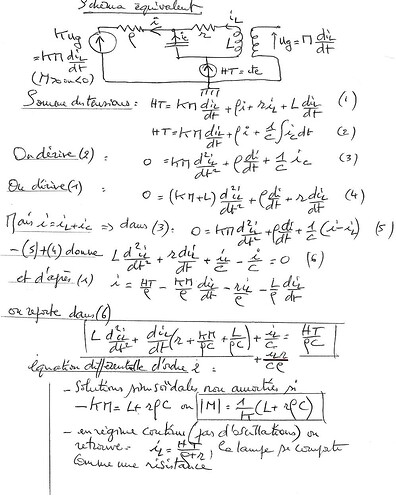 Schéma équivalent
K u_g i ρ r i_L i_c L u_g = M di_L/dt
= KM di_L/dt
(M>0 ou <0) HT = cte
Somme des tensions : HT = KM di_L/dt + ρi + r i_L + L di_L/dt (1)
HT = KM di_L/dt + ρi + 1/C ∫ i_c dt (2)
On dérive (2) : 0 = KM d²i_L/dt² + ρ di/dt + 1/C i_c (3)
On dérive (1) : 0 = (KM+L) d²i_L/dt² + ρ di/dt + r di_L/dt (4)
Mais i = i_L + i_c ⇒ dans (3) : 0 = KM d²i_L/dt² + ρ di/dt + 1/C (i - i_L) (5)
-(5)+(4) donne L d²i_L/dt² + r di_L/dt + i_L/C - i/C = 0 (6)
et d'après (1) i = HT/ρ - KM/ρ di_L/dt - r i_L/ρ - L/ρ di_L/dt
on reporte dans (6)
L d²i_L/dt² + di_L/dt (r + KM/ρC + L/ρC) + i_L/C + i_L r/Cρ = HT/ρC
équation différentielle d'ordre 2 :
- Solutions sinusoïdales non amorties si
-KM = L + rρC ou |M| = 1/K (L + rρC)
- en régime continu (pas d'oscillations) on
retrouve : i_L = HT/ρ+r, la lampe se comporte
comme une résistance